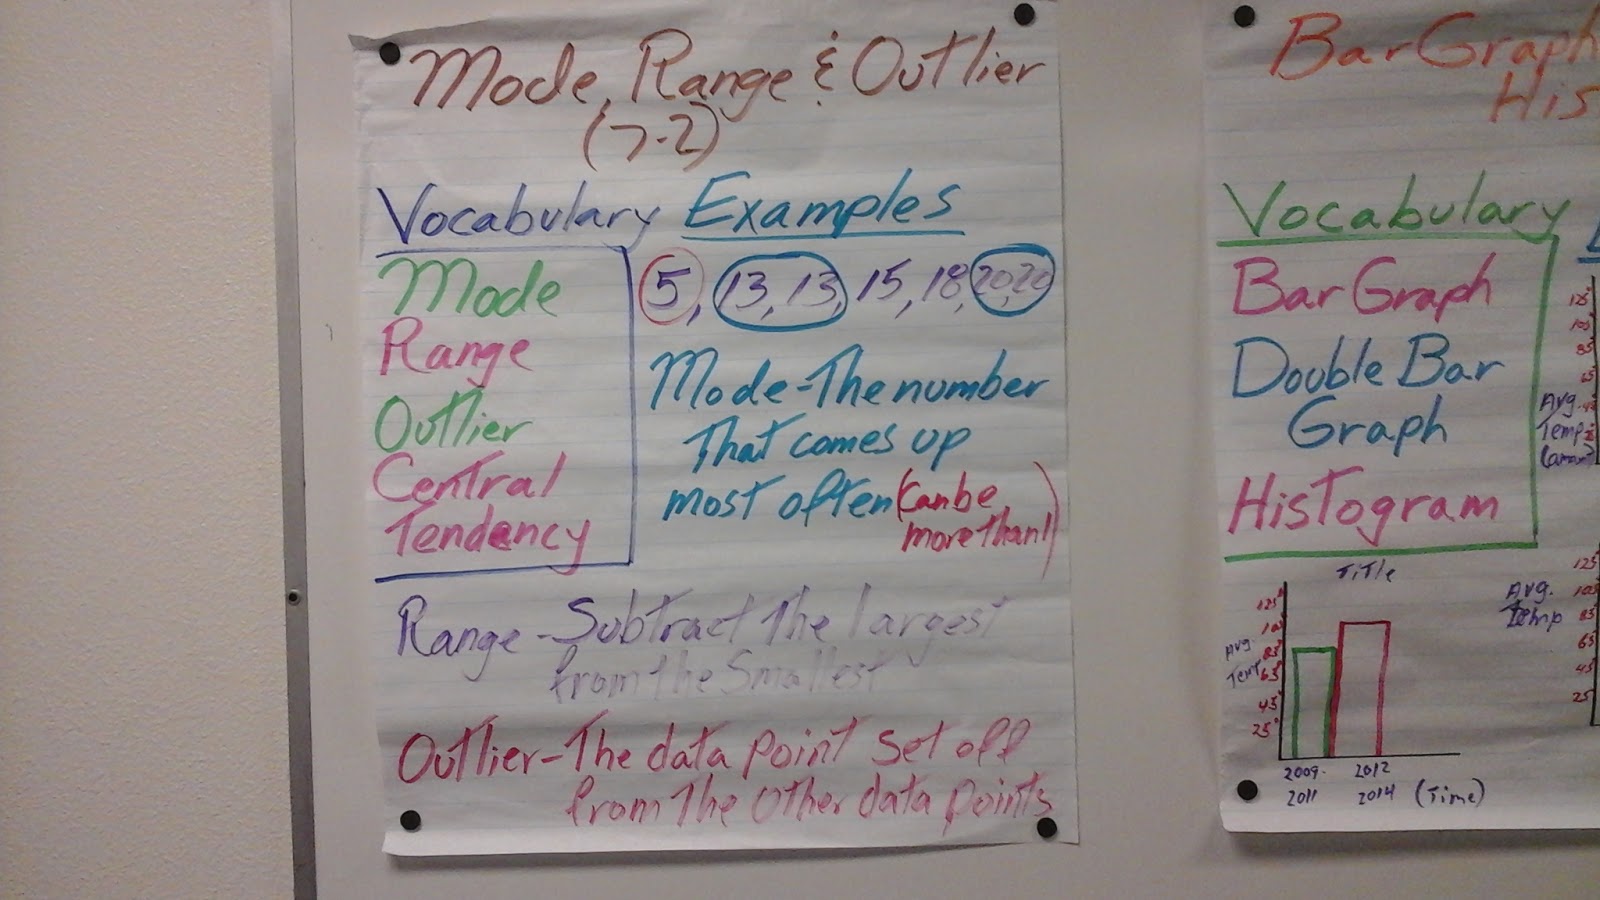 Mode, Range & Outlier
(7-2)
Vocabulary Examples
Mode
Range
Outlier
Central
Tendency
5, 13, 13, 15, 18, 20, 20
Mode-The number
That comes up
most often (can be
more than 1)
Range-Subtract The largest
from the Smallest
Outlier-The data point set off
from The other data points
Bar Graph
His
Vocabulary
Bar Graph
Double Bar
Graph
Histogram
Avg.
Temp
TiTle
125
Avg.
Temp
85
65
45
25
2009-
2011
2012
2014
(Time)
Avg.
Temp
125
105
85
65
45
25